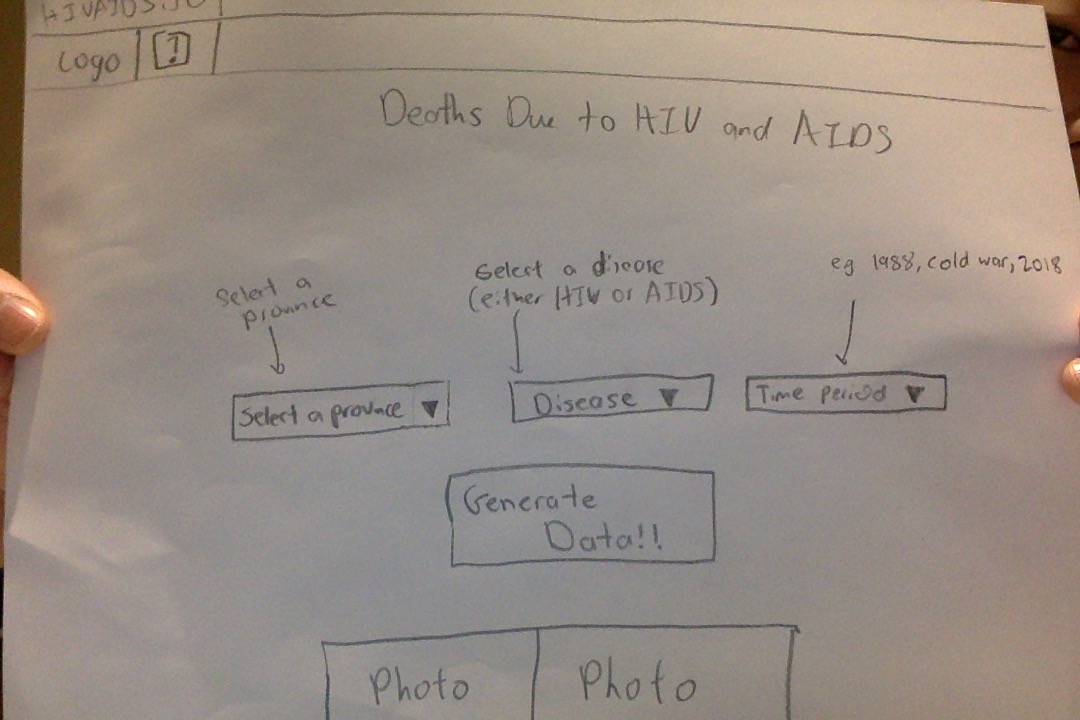 Logo [?]
Deaths Due to HIV and AIDS
Select a
province
Select a disease
(either HIV or AIDS)
eg 1988, cold war, 2018
Select a province ▼
Disease ▼
Time period ▼
Generate
Data!!
Photo
Photo